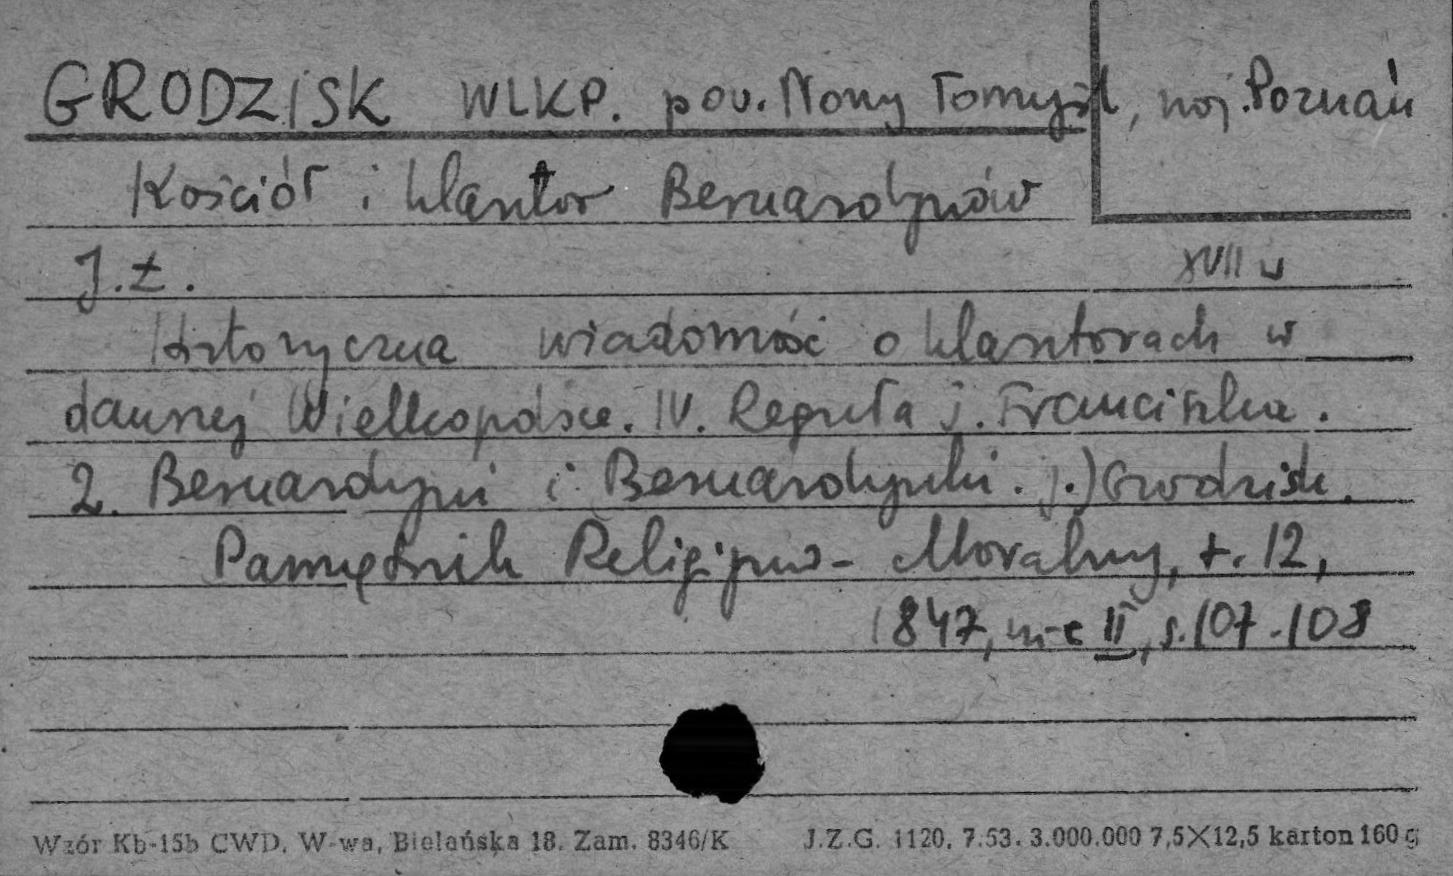 GRODZISK WLKP. pow. Nowy Tomyśl, woj. Poznań
Kościół i klasztor Bernardynów
J. Ł.
XVII w
Historyczna wiadomość o klasztorach w
dawnej Wielkopolsce. IV. Reguła ś. Franciszka.
2. Bernardyni i Bernardynki. j.) Grodzisk.
Pamiętnik Religijno-Moralny, t. 12,
1847, m-c II, s. 107-108
Wzór Kb-15b CWD, W-wa, Bielańska 18. Zam. 8346/K J.Z.G. 1120. 7.53. 3.000.000 7,5×12,5 karton 160 g